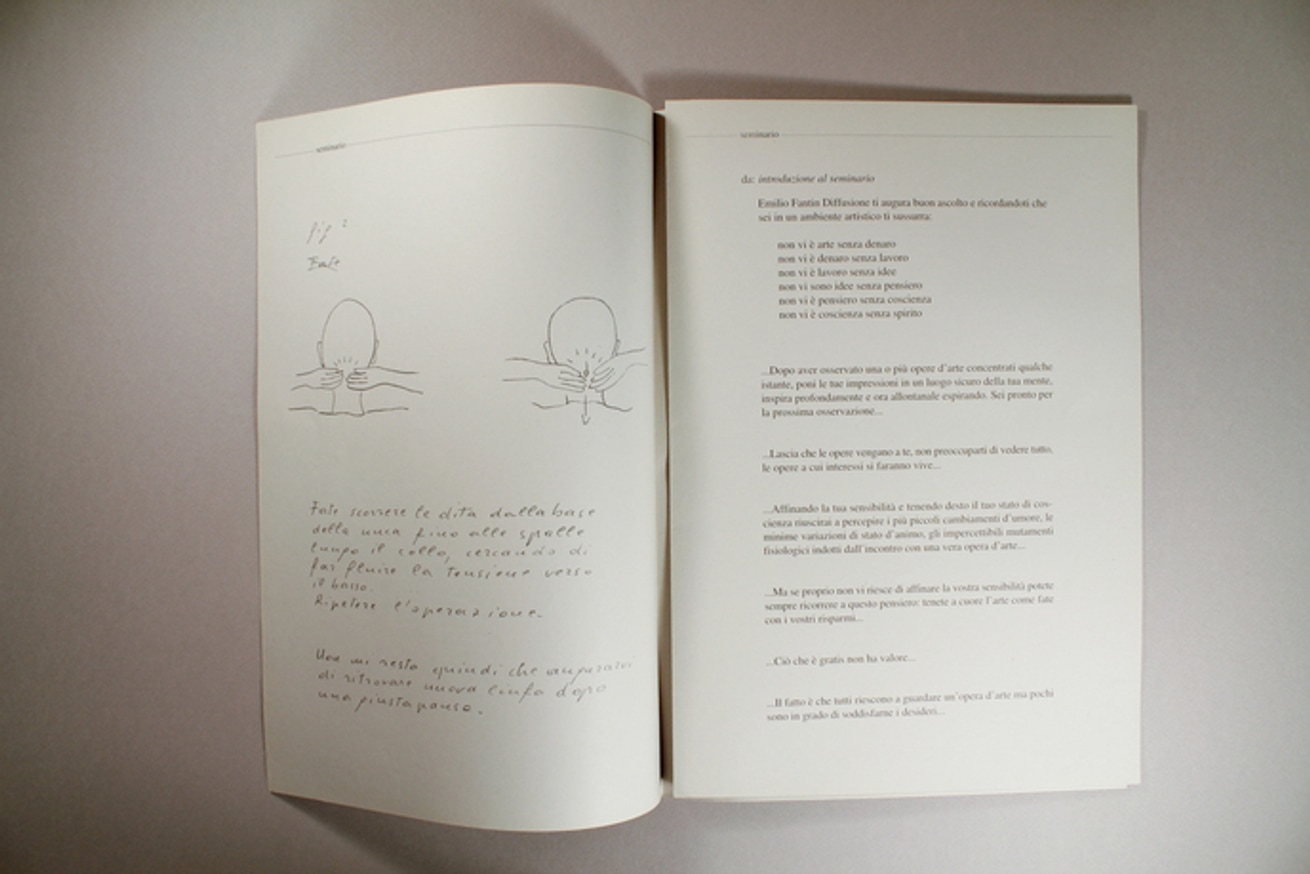 seminario
fig 2
Fate scorrere le dita dalla base
della nuca fino alle spalle
lungo il collo, cercando di
far fluire la tensione verso
il basso.
Ripetere l'operazione.
Non mi resta quindi che augurarvi
di ritrovare nuova linfa dopo
una giusta pausa.
seminario
da: introduzione al seminario
Emilio Fantin Diffusione ti augura buon ascolto e ricordandoti che
sei in un ambiente artistico ti sussurra:
non vi è arte senza denaro
non vi è denaro senza lavoro
non vi è lavoro senza idee
non vi sono idee senza pensiero
non vi è pensiero senza coscienza
non vi è coscienza senza spirito
...Dopo aver osservato una o più opere d'arte concentrati qualche
istante, poni le tue impressioni in un luogo sicuro della tua mente,
inspira profondamente e ora allontanale espirando. Sei pronto per
la prossima osservazione...
...Lascia che le opere vengano a te, non preoccuparti di vedere tutto,
le opere a cui interessi si faranno vive...
...Affinando la tua sensibilità e tenendo desto il tuo stato di cos-
cienza riuscirai a percepire i più piccoli cambiamenti d'umore, le
minime variazioni di stato d'animo, gli impercettibili mutamenti
fisiologici indotti dall'incontro con una vera opera d'arte...
...Ma se proprio non vi riesce di affinare la vostra sensibilità potete
sempre ricorrere a questo pensiero: tenete a cuore l'arte come fate
con i vostri risparmi...
...Ciò che è gratis non ha valore...
...Il fatto è che tutti riescono a guardare un'opera d'arte ma pochi
sono in grado di soddisfarne i desideri...